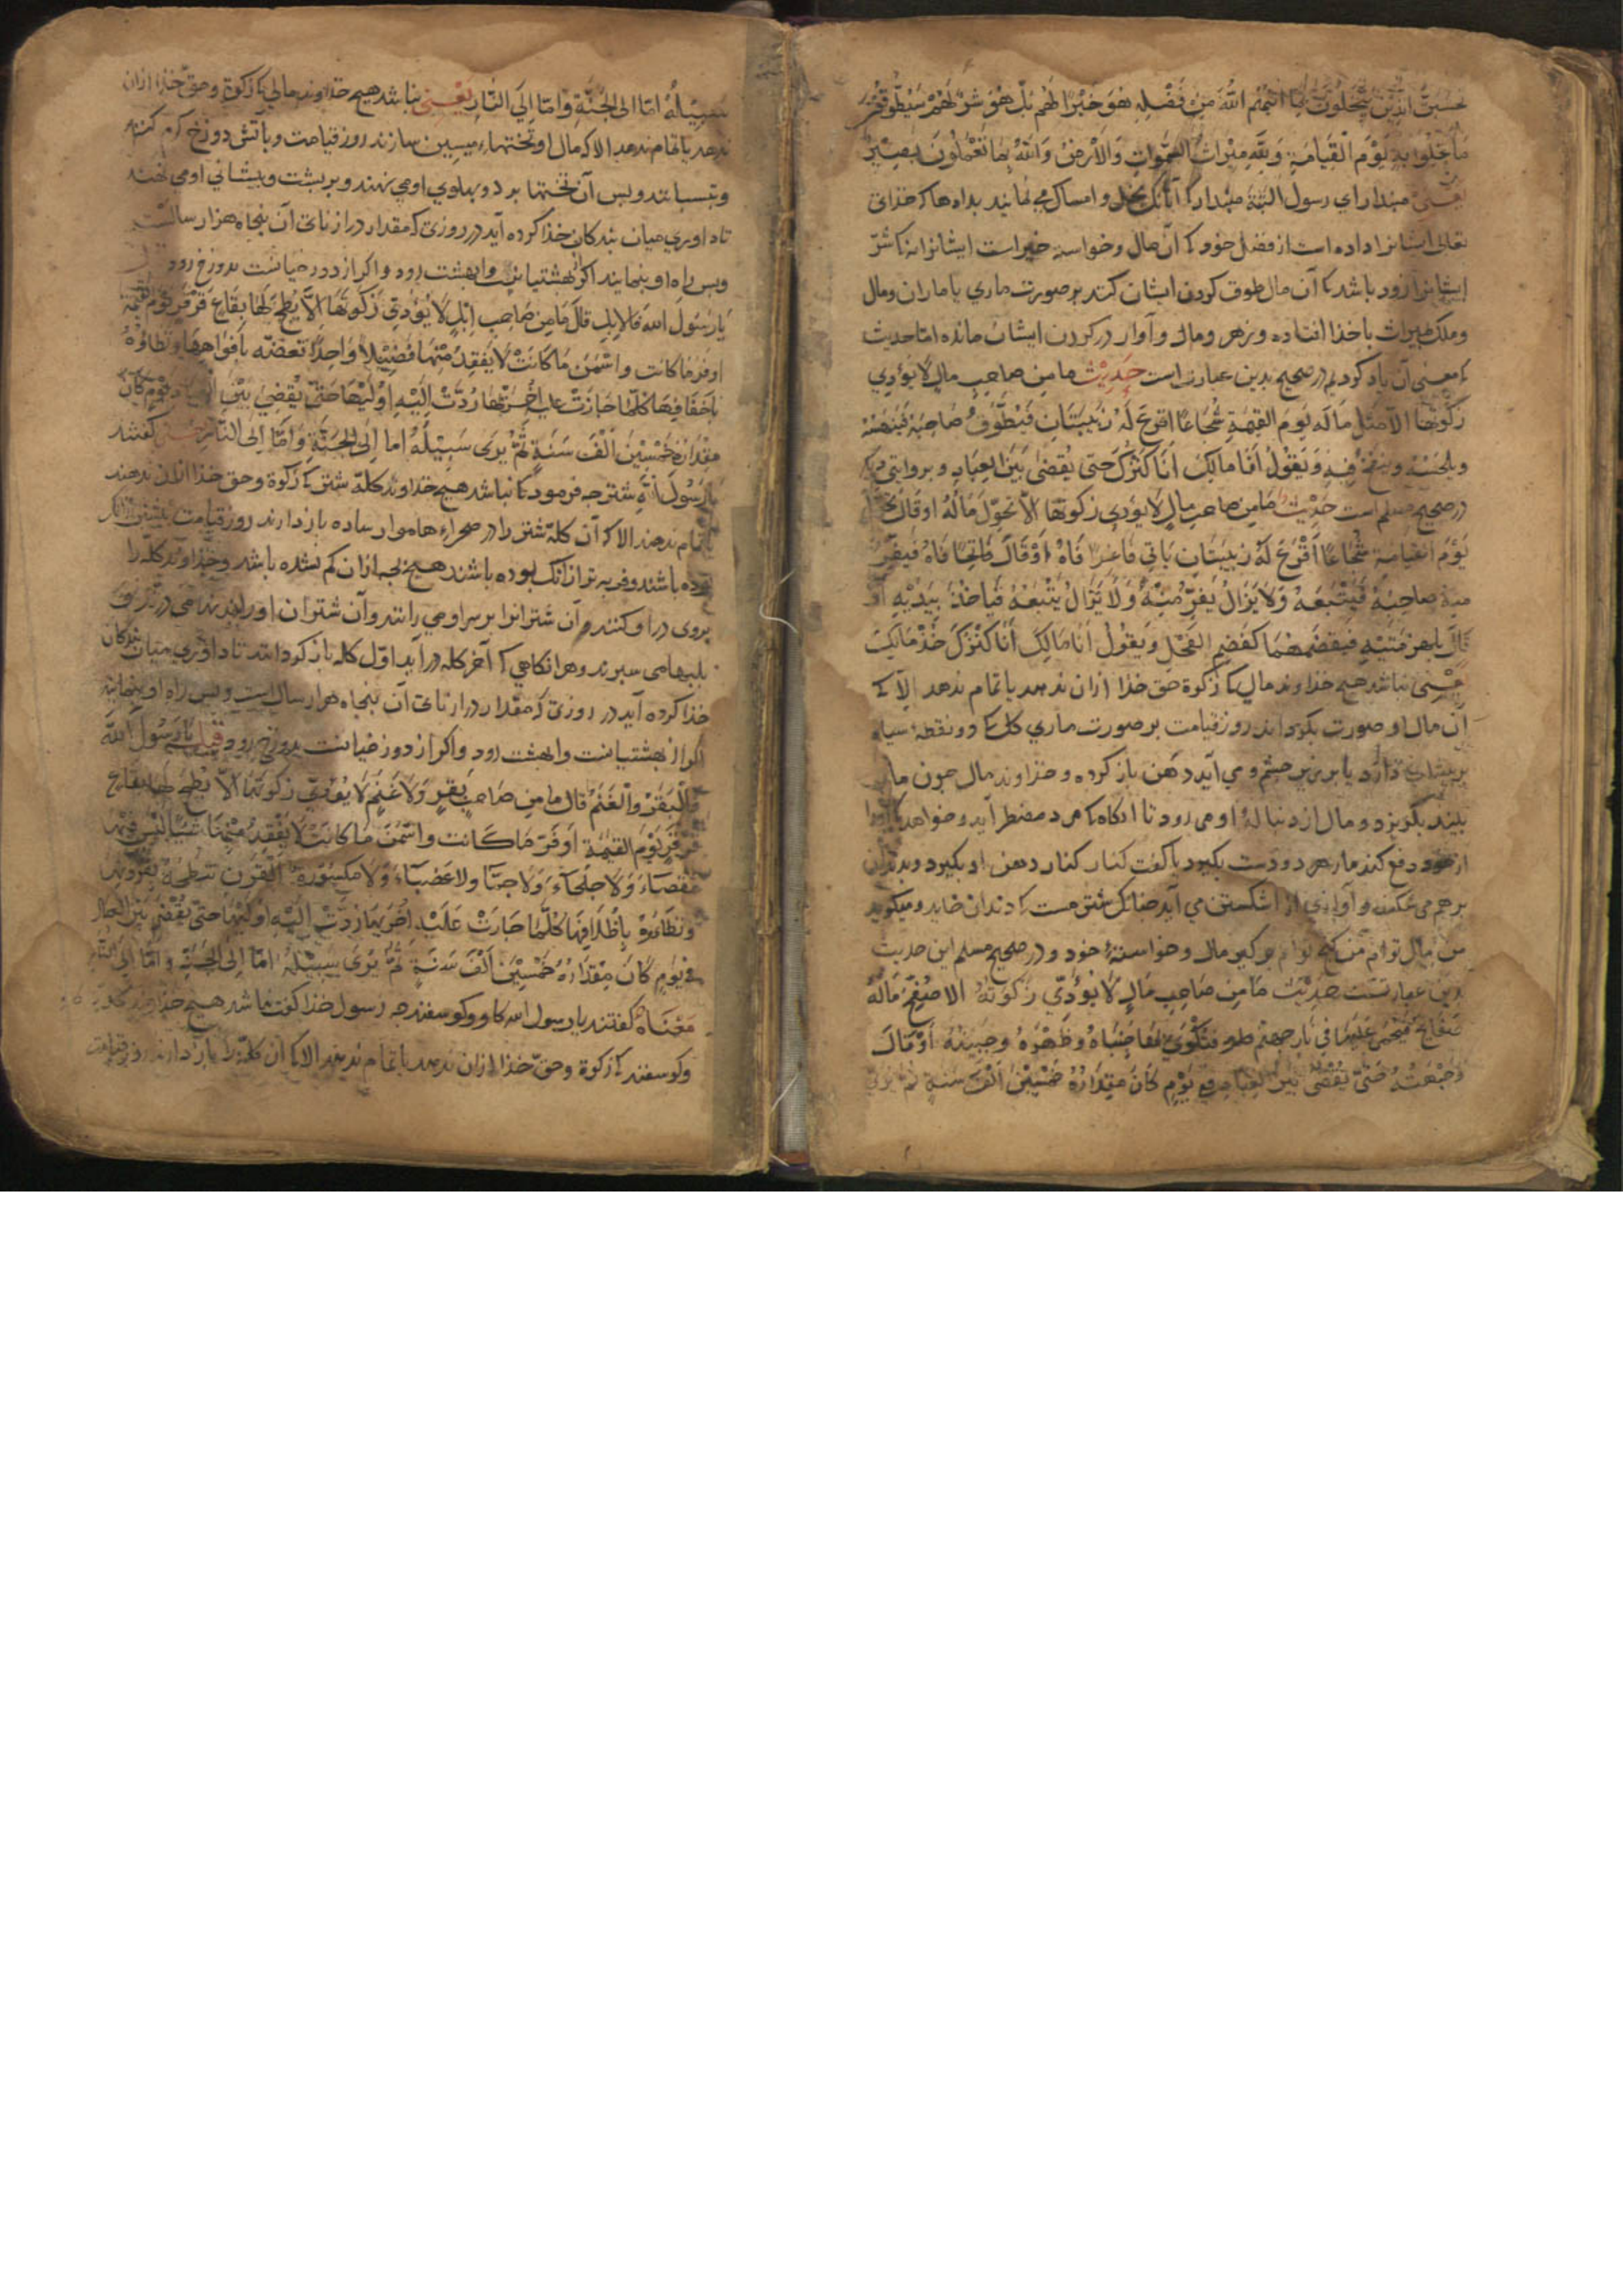 یحسبن الذین یبخلون بما اتیهم الله من فضله هو خیرا لهم بل هو شر لهم سیطوقون
ما بخلوا به یوم القیامة ولله میراث السموات والارض والله بما تعملون بصیر
یعنی مبندار ای رسول البتة مبندار که آنانک بخل و امساک می نمایند بداه ها که خذای
تعالی ایشانرا داده است از فضل خود که آن مال وخواسته خیر است ایشانرا نه که شر
ایشانرا زود باشد که آن مال طوق کردن ایشان کنند بر صورت ماری یا ماران ومال
وملک میراث باخذا افتاده و زهر ومال و آوار در کردن ایشان مانده اما حدیث
که معنی آن یاد کردیم در صحیح بدین عبارتست حدیث ما من صاحب مال لا یؤدی
زکوتها الا مثل ماله یوم القیمة شجاعا اقرع له زبیبتان فیطوف صاحبه فینهسه
ویقول انا مالک انا کنزک حتی یقضی بین العباد و بروایتی دیکر
در صحیح مسلم است حدیث ما من صاحب مال لا یؤدی زکوتها الا تحول ماله او قال
یوم القیامة شجاعا اقرع له زبیبتان یاتی فاغرا فاه او قال فاتحا فاه فیفر
منه صاحبه فیتبعه ولا یزال یفر منه ولا یزال یتبعه فیاخذ بیدیه او
قال بلهزمتیه فیقضمهما کقضم الفحل ویقول انا مالک انا کنزک خذ مالک
یعنی نباشد هیچ خذاوند مالی که زکوة حق خذا ازان ندهد یا تمام ندهد الا که
آن مال او صورت بکرداند روز قیامت بر صورت ماری کل که دو نقطۀ سیاه
بر پیشانی دارد یا برزبر چشم و می آید دهن باز کرده و خذاوند مال چون مار
بیند بکریزد و مال از دنبالۀ او می رود تا آنکاه که مرد مضطر آید و خواهد که او را
از خود دفع کند مار هر دو دست بکیرد یا کفت کنار کنار دهن او بکیرد و بدندان
بر هم می شکند و آوازی از اشکستن می آید چنانک شتر مست که دندان خاید و میکوید
من مال توام من کنج توام بر کیر مال وخواستۀ خود و در صحیح مسلم این حدیث
بدین عبارتست حدیث ما من صاحب مال لا یؤدی زکوته الا صفح ماله
صفایح فیحمی علیها فی نار جهنم فتکوی بها جنباه وظهره وجبینه او قال
وجبهته حتی یقضی بین العباد فی یوم کان مقداره خمسین الف سنة ثم یری
سبیله اما الی الجنة واما الی النار یعنی نباشد هیچ خذاوند مالی که زکوة وحق خذا ازان
ندهد یا تمام ندهد الا که مال او تختهاء میسین سازند روز قیامت و باتش دوزخ کرم کنند
وبتسبانند وپس آن تختها بر دو پهلوی او می نهند و بر پشت و پیشانی او می نهند
تا داوری میان بندکان خذا کرده آید در روزی که مقدار درازنای آن پنجاه هزار سالست
وپس راه او بنمایند اکر بهشتیانست وا بهشت رود و اکر از دوزخیانست بدوزخ رود
یا رسول الله فالابل قال ما من صاحب ابل لا یؤدی زکوتها الا بطح لها بقاع قرقر یوم القیمة
اوفر ما کانت واسمن ما کانت لا یفقد منها فصیلا واحدا تعضه بافواهها وتطاؤه
باخفافها کلما جازت علیه اخریها ردت الیه اولیها حتی یقضی بین العباد فی یوم کان
مقداره خمسین الف سنة ثم یری سبیله اما الی الجنة واما الی النار کفتند
یا رسول الله شتر چه فرمود که نباشد هیچ خذاوند کلۀ شتر که زکوة وحق خذا ازان ندهند
یا تمام ندهند الا که آن کلۀ شتر را در صحراء هاموار ساده باز دارند روز قیامت
بوده باشند وفربه تر از آنک بوده باشند هیچ بچه ازان کم نشده باشد وخذاوند کله را
بروی در او کنند و آن شترانرا بر سر او می رانند و آن شتران او را
بلبها می سپرند و هر آنکاهی که آخر کله در آید اول کله باز کردانند تا داوری میان بندکان
خذا کرده آید در روزی که مقدار درازنای آن پنجاه هزار سالست وپس راه او بنمایند
اکر از بهشتیانست وا بهشت رود واکر از دوزخیانست بدوزخ رود قیل یا رسول الله
فالبقر والغنم قال ما من صاحب بقر ولا غنم لا یؤدی زکوتها الا بطح لها بقاع
قرقر یوم القیمة اوفر ما کانت واسمن ما کانت لا یفقد منها شیئا لیس فیها
عقصاء ولا جلحاء ولا عضباء ولا مکسورة القرن تنطحه بقرونها
وتطاؤه باظلافها کلما جازت علیه اخریها ردت الیه اولیها حتی یقضی بین العباد
فی یوم کان مقداره خمسین الف سنة ثم یری سبیله اما الی الجنة واما الی النار
معناه کفتند یا رسول الله کاو وکوسفند چه رسول خذا کفت نباشد هیچ خذاوند کلۀ کاو
وکوسفند که زکوة وحق خذا ازان ندهد یا تمام ندهد الا که آن کله را باز دارند روز قیامت